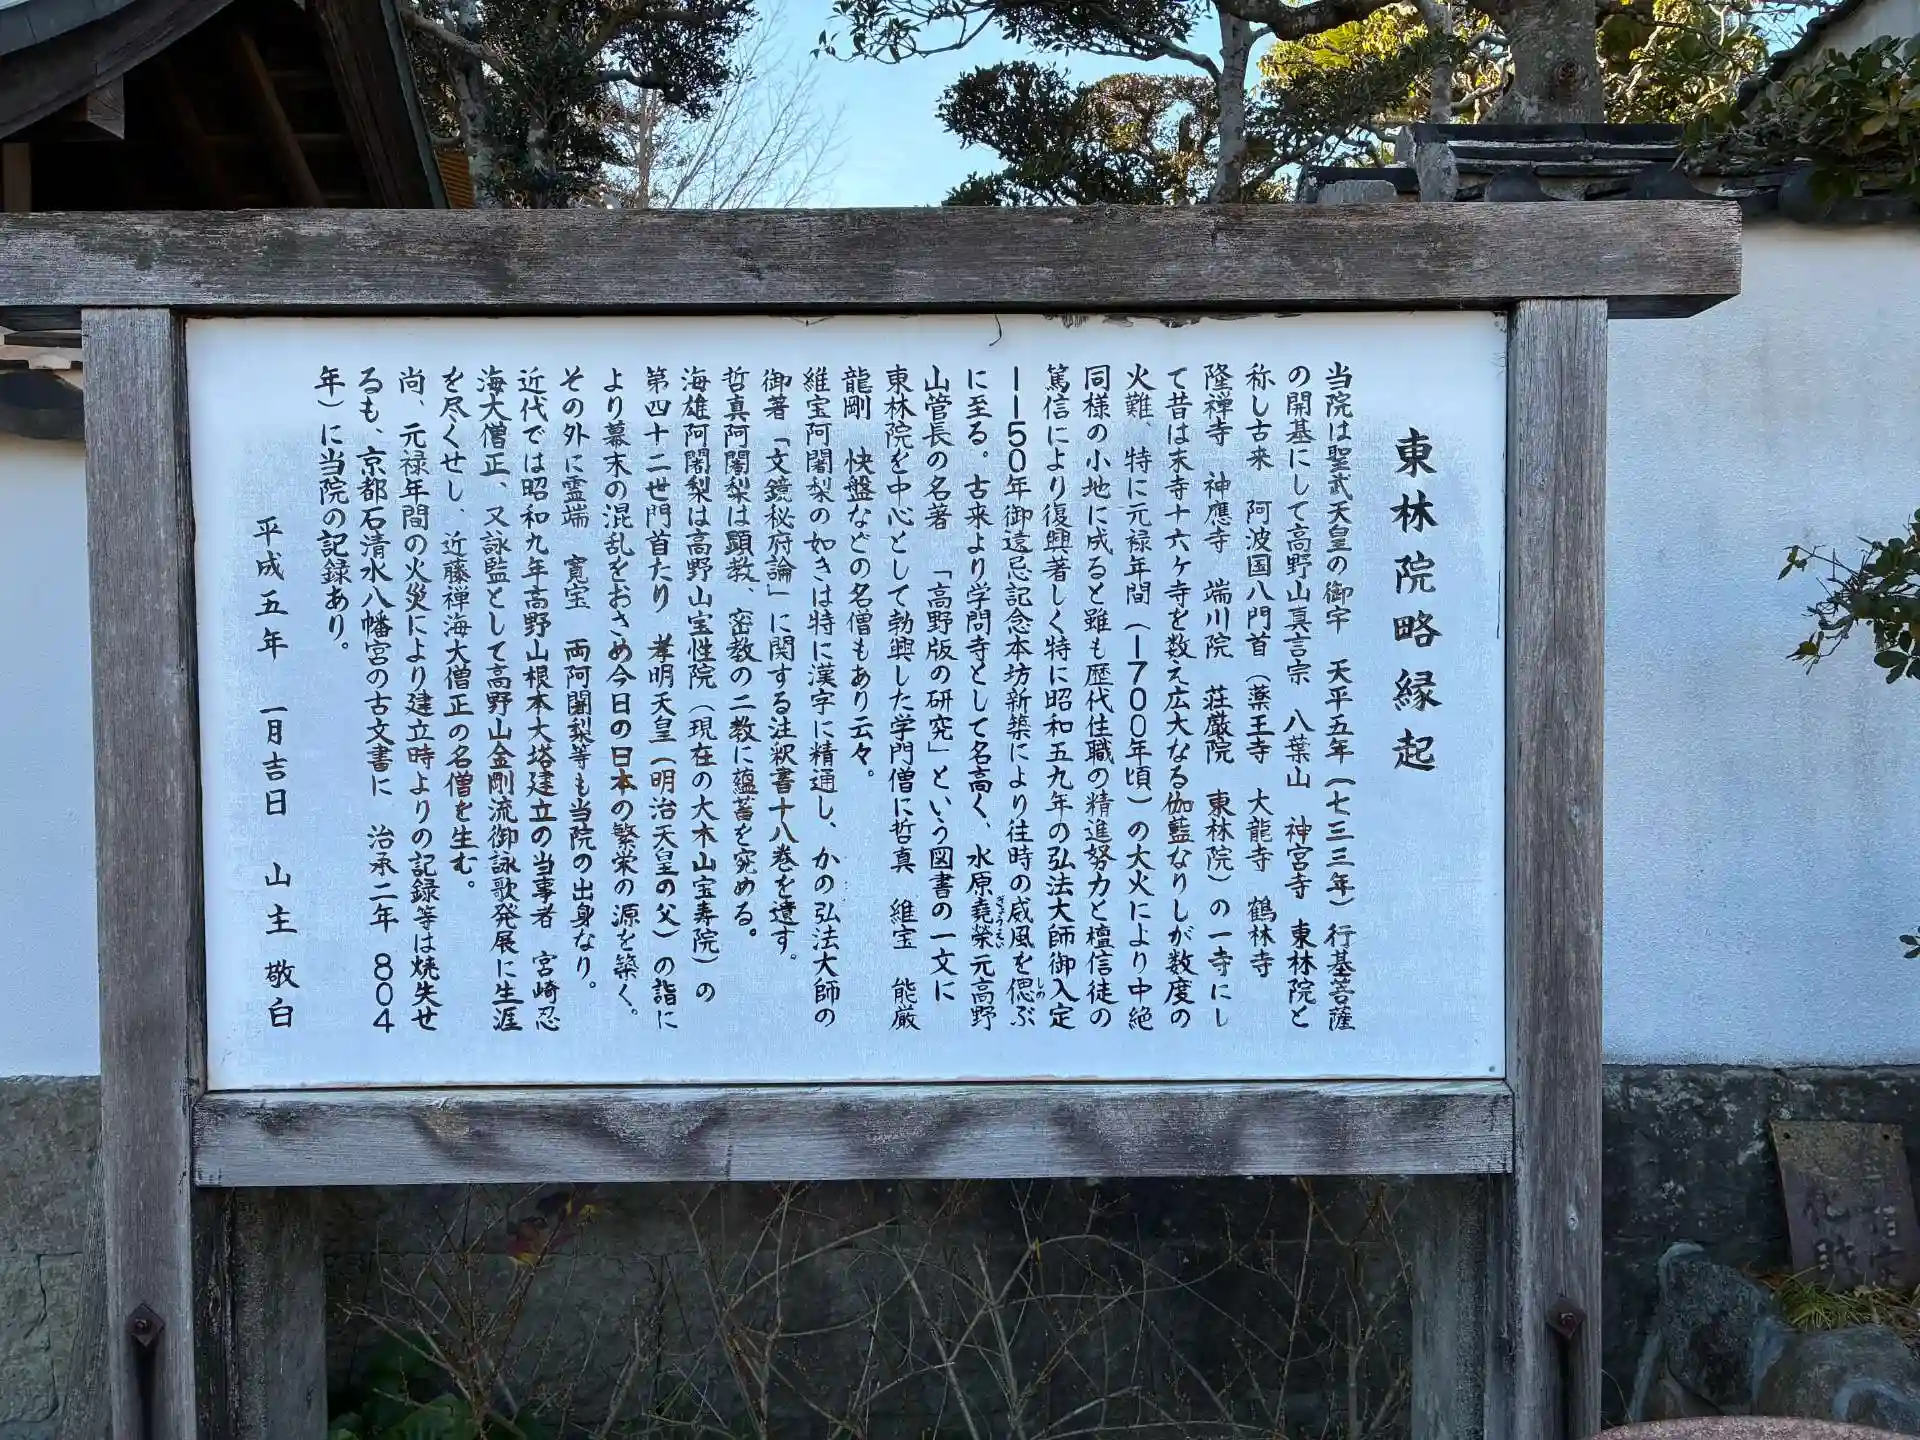 東林院略縁起
当院は聖武天皇の御宇　天平五年（七三三年）行基菩薩
の開基にして高野山真言宗　八葉山　神宮寺　東林院と
称し古来　阿波国八門首（薬王寺　大龍寺　鶴林寺
隆禅寺　神應寺　端川院　荘厳院　東林院）の一寺にし
て昔は末寺十六ヶ寺を数え広大なる伽藍なりしが数度の
火難、特に元禄年間（1700年頃）の大火により中絶
同様の小地に成ると雖も歴代住職の精進努力と檀信徒の
篤信により復興著しく特に昭和五九年の弘法大師御入定
1150年御遠忌記念本坊新築により往時の威風を偲ぶ
しの
に至る。古来より学問寺として名高く、水原堯榮元高野
ぎょうえい
山管長の名著　「高野版の研究」という図書の一文に
東林院を中心として勃興した学門僧に哲真　維宝　能厳
龍剛　快盤などの名僧もあり云々。
維宝阿闍梨の如きは特に漢字に精通し、かの弘法大師の
御著「文鏡秘府論」に関する注釈書十八巻を遺す。
哲真阿闍梨は顕教、密教の二教に蘊蓄を究める。
海雄阿闍梨は高野山宝性院（現在の大本山宝寿院）の
第四十二世門首たり　孝明天皇（明治天皇の父）の詣に
より幕末の混乱をおさめ今日の日本の繁栄の源を築く。
その外に霊端　寛宝　両阿闍梨等も当院の出身なり。
近代では昭和九年高野山根本大塔建立の当事者　宮崎忍
海大僧正、又詠監として高野山金剛流御詠歌発展に生涯
を尽くせし、近藤禅海大僧正の名僧を生む。
尚、元禄年間の火災により建立時よりの記録等は焼失せ
るも、京都石清水八幡宮の古文書に　治承二年　804
年）に当院の記録あり。
平成五年　一月吉日　山主　敬白